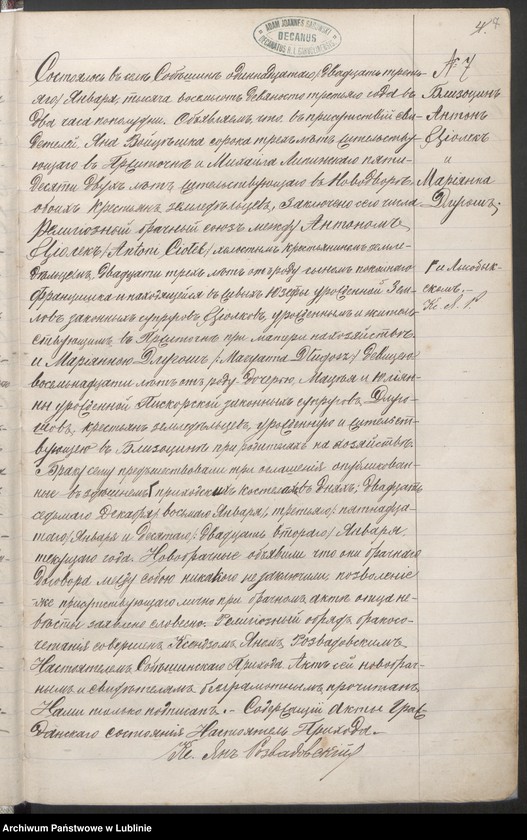 ADAM JOANNES
DECANUS
DECANATUS
4.
№ 7
Близоцинъ
Антонъ
Ціолекъ
и
Маріянна
Длугошъ,
Состоялось въ селѣ Собѣшинѣ одиннадцатаго /: двадцать треть-
яго/ Января, тысяча восемьсотъ девяносто третьяго года въ
два часа пополудни. Объявляемъ, что въ присутствіи сви-
дѣтелей, Яна Войцѣшка сорока трехъ лѣтъ жительству-
ющаго въ и Михаила пяти-
десяти двухъ лѣтъ жительствующаго въ Новодворѣ,
обоихъ крестьянъ земледѣльцевъ, заключенъ сего числа
религіозный брачный союзъ между Антономъ
Ціолекъ /Antoni Ciołek/ холостымъ крестьяниномъ земле-
дѣльцемъ, двадцати трехъ лѣтъ отъ роду сыномъ покойнаго
Францишка и находящейся въ живыхъ Юзефы урожденной
законныхъ супруговъ Ціолковъ, урожденнымъ и житель-
ствующимъ въ при матери на хозяйствѣ.
и Маріянною Длугошъ /: Maryanna Długosz/ дѣвицею
восемьнадцати лѣтъ отъ роду дочерью, Мацѣя и Юліян-
ны урожденной Пискорской законныхъ супруговъ Длуго-
шовъ, крестьянъ земледѣльцевъ, урожденную и жительст-
вующею въ Близоцинѣ при родителяхъ на хозяйствѣ.
Браку сему предшествовали три оглашенія опубликован-
ные въ приходскихъ костелахъ въ дняхъ; двадцать
седьмаго Декабря/ восьмаго Января/ третьяго/ пятнадца-
таго/ Января и десятаго/ двадцать втораго/ Января
текущаго года. Новобрачные объявили что они брачнаго
договора между собою никакого не заключили, позволеніе
-же присутствующаго лично при брачномъ актѣ отца не-
вѣсты заявлено словесно. Религіозный обрядъ бракосо-
четанія совершенъ Ксендзомъ Яномъ Розвадовскимъ
Настоятелемъ Собѣшинскаго Прихода. Актъ сей новобрач-
нымъ и свидѣтелямъ безграмотнымъ прочитанъ,
Нами только подписанъ. - Содержащій Акты Граж-
данскаго состоянія Настоятель Прихода.
Кс. Янъ Розвадовскій
Archiwum Państwowe w Lublinie